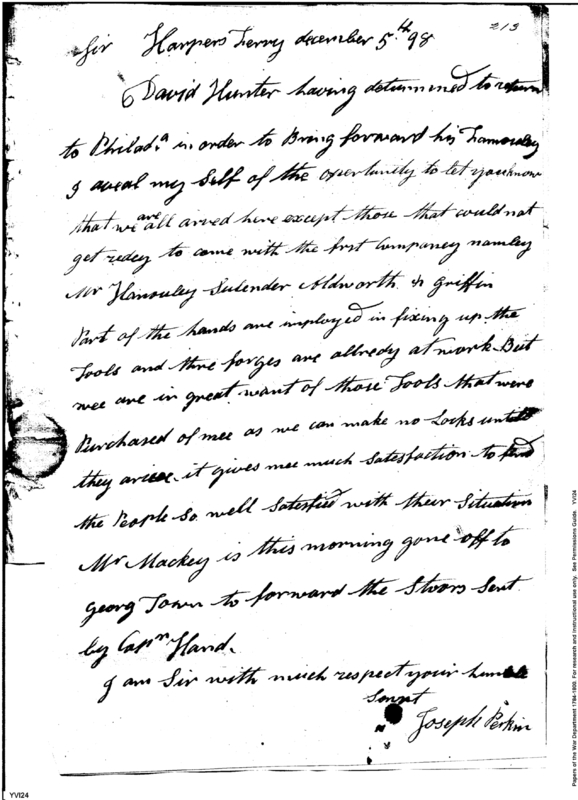 213
Sir Harpers Ferry december 5th 98
David Hunter having determined to return
to Philada in order to Bring forward his Famouley
I aveal my Self of the opertunity to let you know
that we are all arived here except those that could not
get redey to come with the first Companey namley
Mr Hansouley Sulender Aldworth & Griffin
Part of the hands are imployed in fixing up the
Tools and thre forges are allredy at work But
wee are in great want of those Tools that were
Purchased of mee as we can make no Locks untill
they arive it gives mee much Satisfaction to find
the People so well Satesfied with their Situation
Mr Mackey is this morning gone off to
Georg Town to forward the Stoors Sent
by Capn Hand.
I am Sir with much respect your humble
Sarvt
Joseph Perkin
YVI24
Papers of the War Department 1784-1800. For research and instructional use only. See Permissions Guide. YVI24